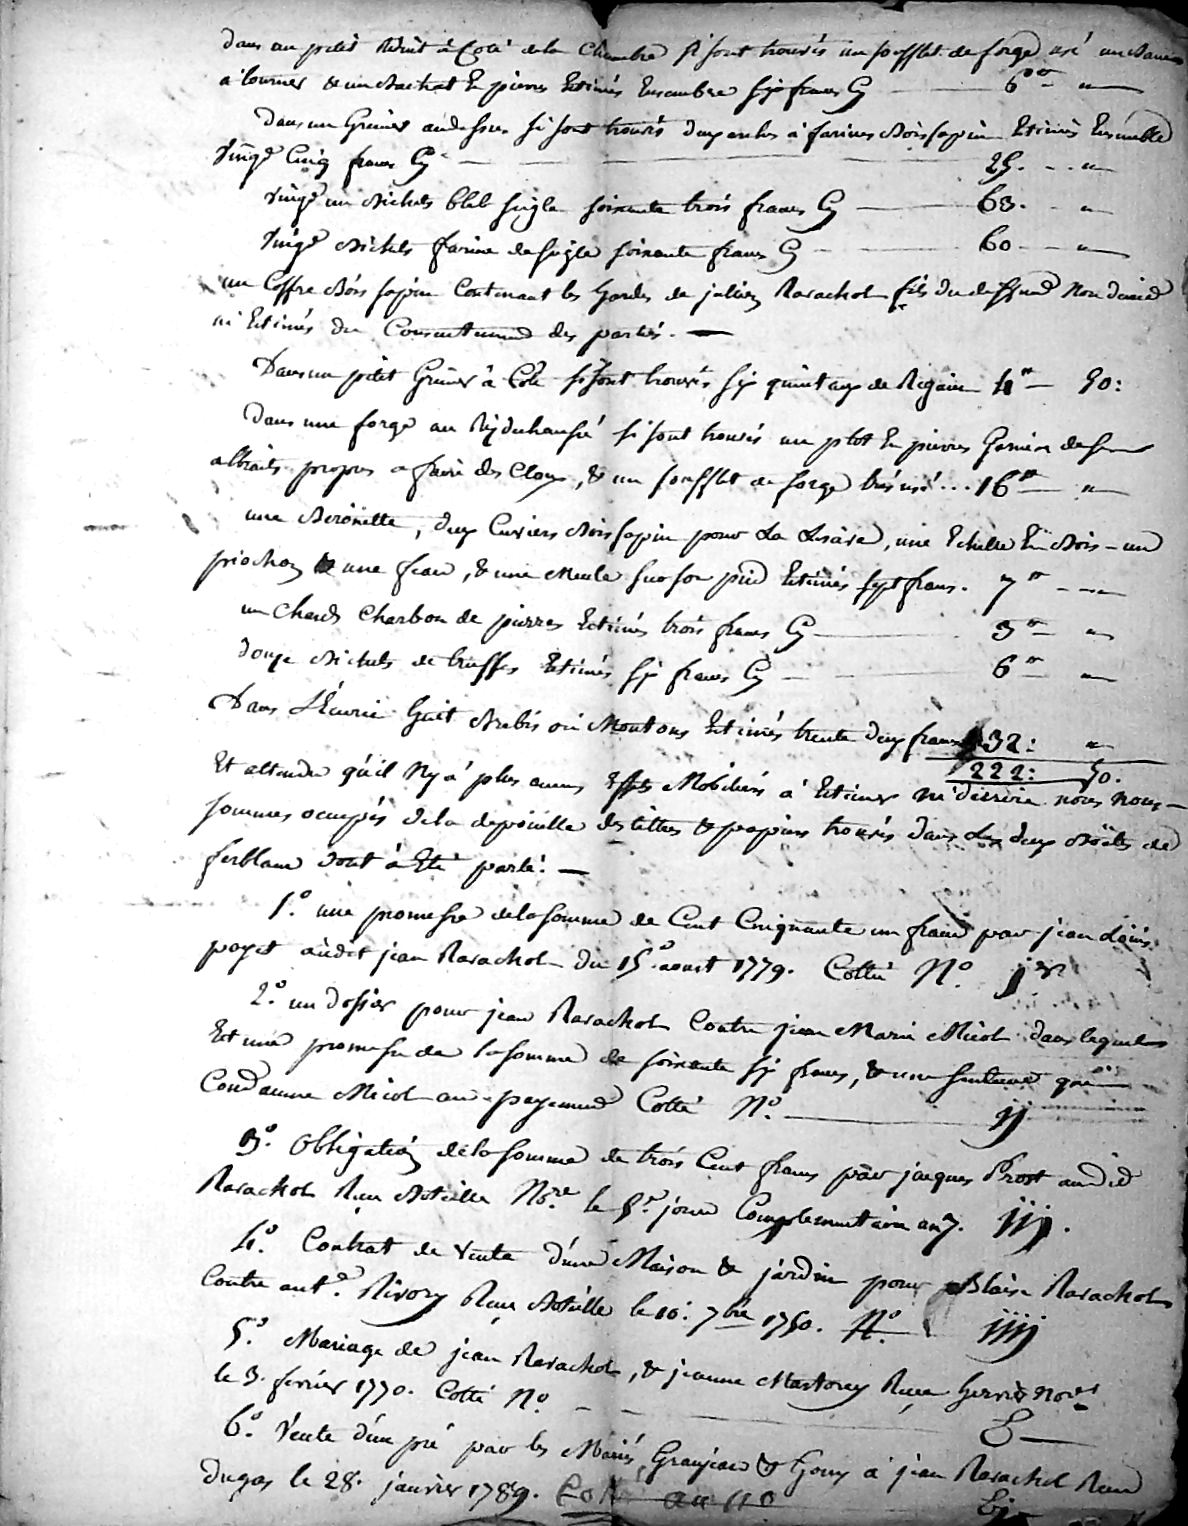 dans un petit Réduit à Coté de la Chambre si sont trouvés un soufflet de forge usé un banc
a tourner & un bachat En pierres Estimés Ensembre six francs Cy 6 "
dans un Grenier audessus si sont trouvés deux arches à farines Bois sapin Estimés Ensemble
vingt Cinq francs Cy 25 "
vingt un bichets bled seigle soixante trois francs Cy 63 "
vingt bichets farine de seigle soixante francs Cy 60 "
un Coffre bois sapin Contenant les hardes de julien Ravachol fils du deffunt Non decrit
ni Estimés du Consentement des parties.
Dans un petit Grenier à Coté si sont trouvés six quintaux de Regain 4 50:
dans une forge au Rez du chaussé si sont trouvés un plot En pierres Garnien de ses
attraits propres a faire des Cloux, & un soufflet de forge très usé ... 16 "
une Berouette, deux Cuviers Bois sapin pour La Lisive, une Echelle En Bois - un
piochon & une , & une Meule sur son pied Estimés sept francs. 7 "
un Charbon de pierres Estimés trois francs Cy 3 "
douze Bichets de truffes Estimés six francs Cy 6 "
Dans L'Ecurie huit Brebis ou Moutons Estimés trente deux francs 32: "
222: 50.
Et attendu qu'il Ny a plus aucuns Effets Mobiliers à Estimer ni decrire nous nous
sommes occupés de la depouille des titres & papiers trouvés dans Les deux Boëtes de
ferblanc dont à Eté parlé.
1.° une promesse de la somme de Cent Cinquante un francs par jean Louis
payet audit jean Ravachol du 15. aoust 1779. Cotté N.° 1er
2.° un dossier pour jean Ravachol Contre jean Marie Micol dans lequel
Est une promesse de la somme de soixante six francs, & une sentence qui
Condamne Micol au payement Cotté N.° ij
3.° obligation de la somme de trois Cent francs par jacques Prost audit
Ravachol Reçu Boteille N.re le 5.e jour Complementaire an 7. iij.
4.° Contrat de Vente d'une Maison & jardin pour Blaise Ravachol
Contre ant.e Rivory Reçu Boteille le 10: 7bre 1750. N.° iiij
5.° Mariage de jean Ravachol, & jeanne Mastorey Reçu hervier Nore
le 3. fevrier 1770. Cotté N.°
6.° Vente d'un pré par les Mariés Granjean & Gouy a jean Ravachol Recu
dugas le 28. janvier 1789. Cotté au N.°